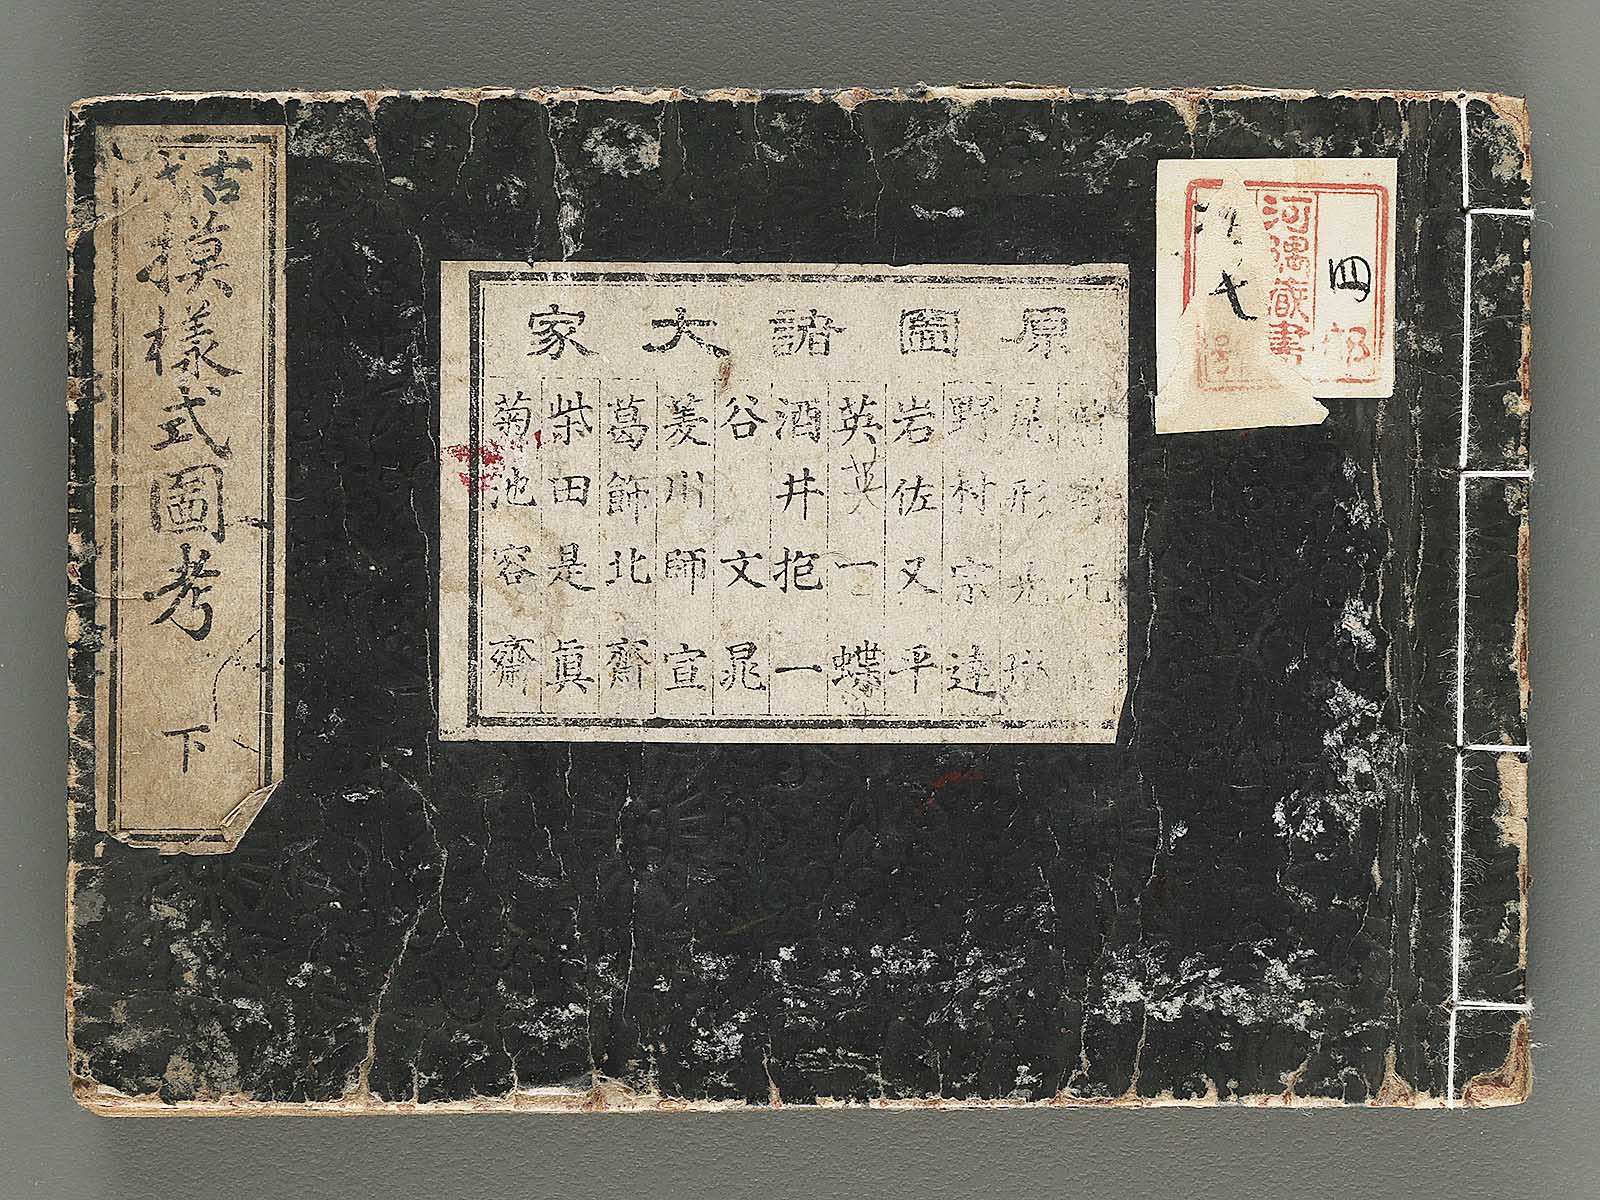 古代
模樣式圖考
下
原圖諸大家
狩野元信
尾形光琳
野村宗達
岩佐又平
英一蝶
酒井抱一
谷文晁
菱川師宣
葛飾北齋
柴田是眞
菊池容齋
四部
河隅蔵書
号